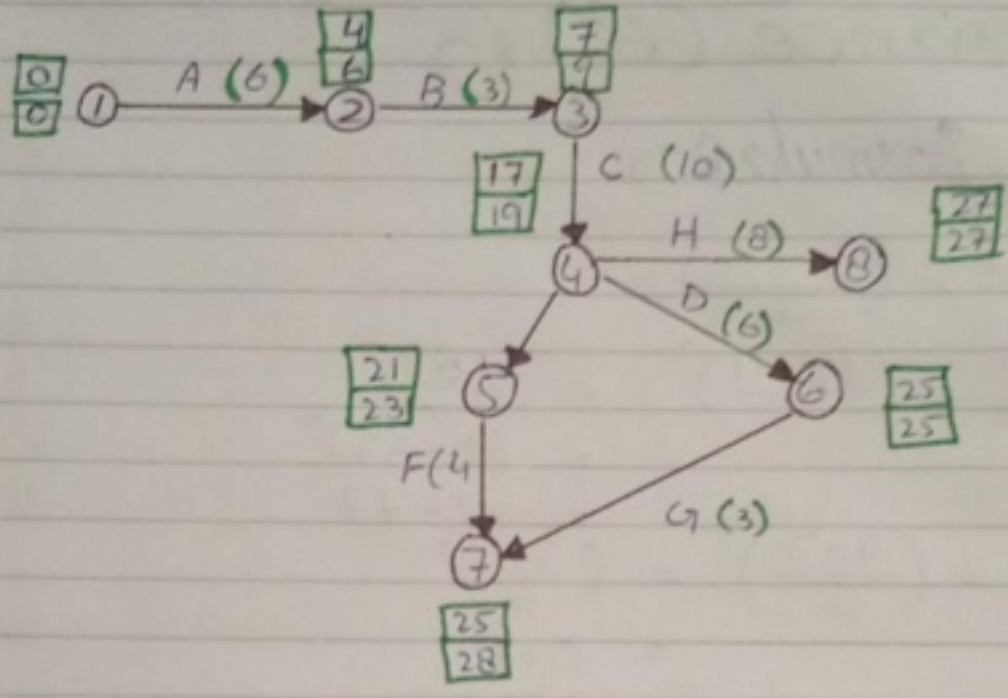 0
0
1
A (6)
4
6
2
B (3)
7
9
3
C (10)
17
19
4
H (8)
8
27
27
D (6)
21
23
5
6
25
25
F(4
G (3)
7
25
28